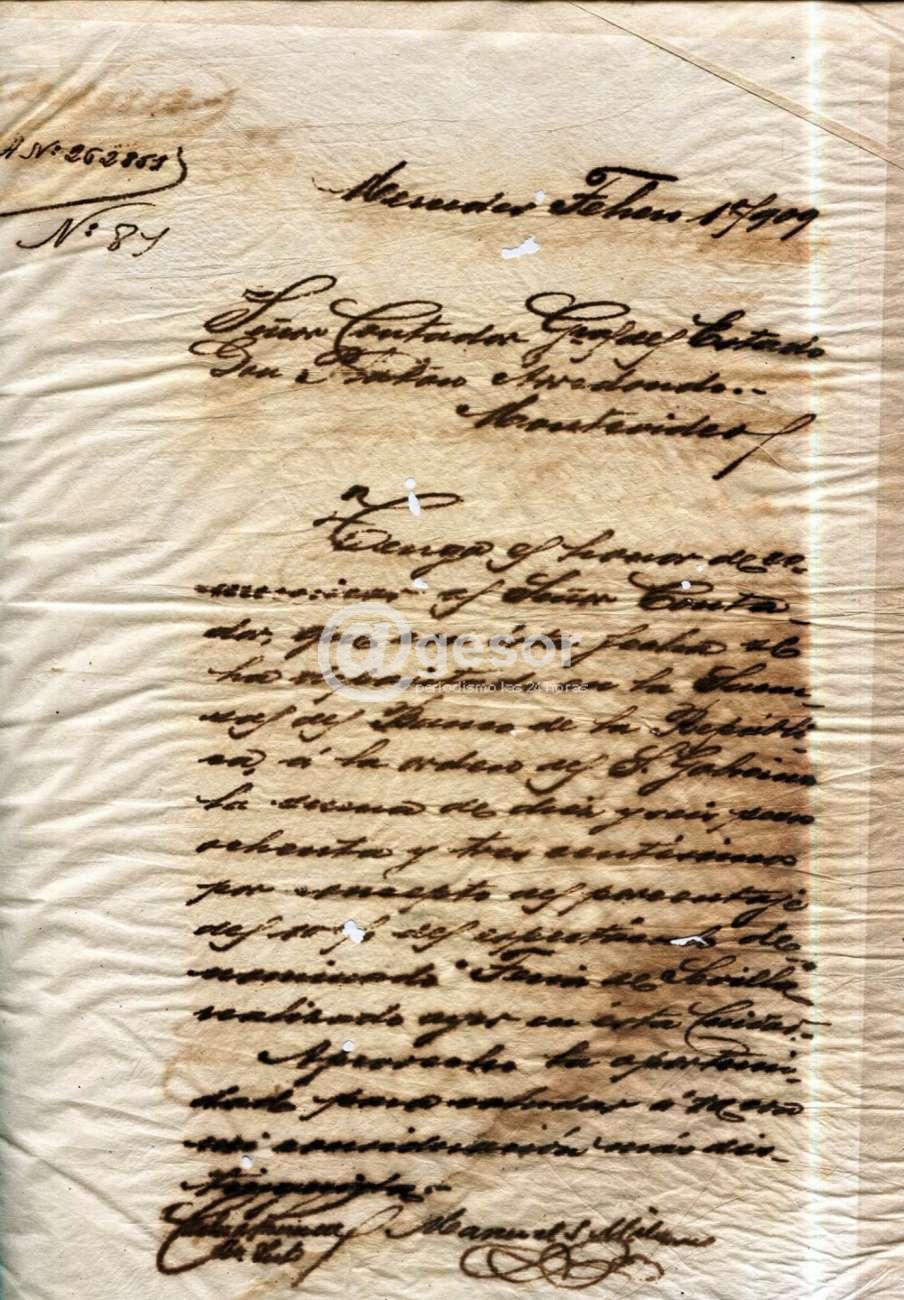 A Nº 262861
Nº 81
Mercedes Febro 1º/909
Señor Contador Gral del Estado
Don Arredondo.-
Montevideo
Tengo el honor de co-
municar al Señor Conta
dor, que con ésta fecha se
ha depositado en la Sucur
sal del Banco de la Repúbli
ca, á la orden del S. Gobierno
la suma de diez y seis pesos
ochenta y tres centésimos
por concepto del porcentaje
del 10 % del espectáculo de-
nominado "Feria de Sevilla"
realizado ayer en ésta Ciudad.-
Aprovecho la oportuni-
dad para saludar á
mi consideración más dis-
tinguida.-
Manuel S.
@gesor
periodismo las 24 horas